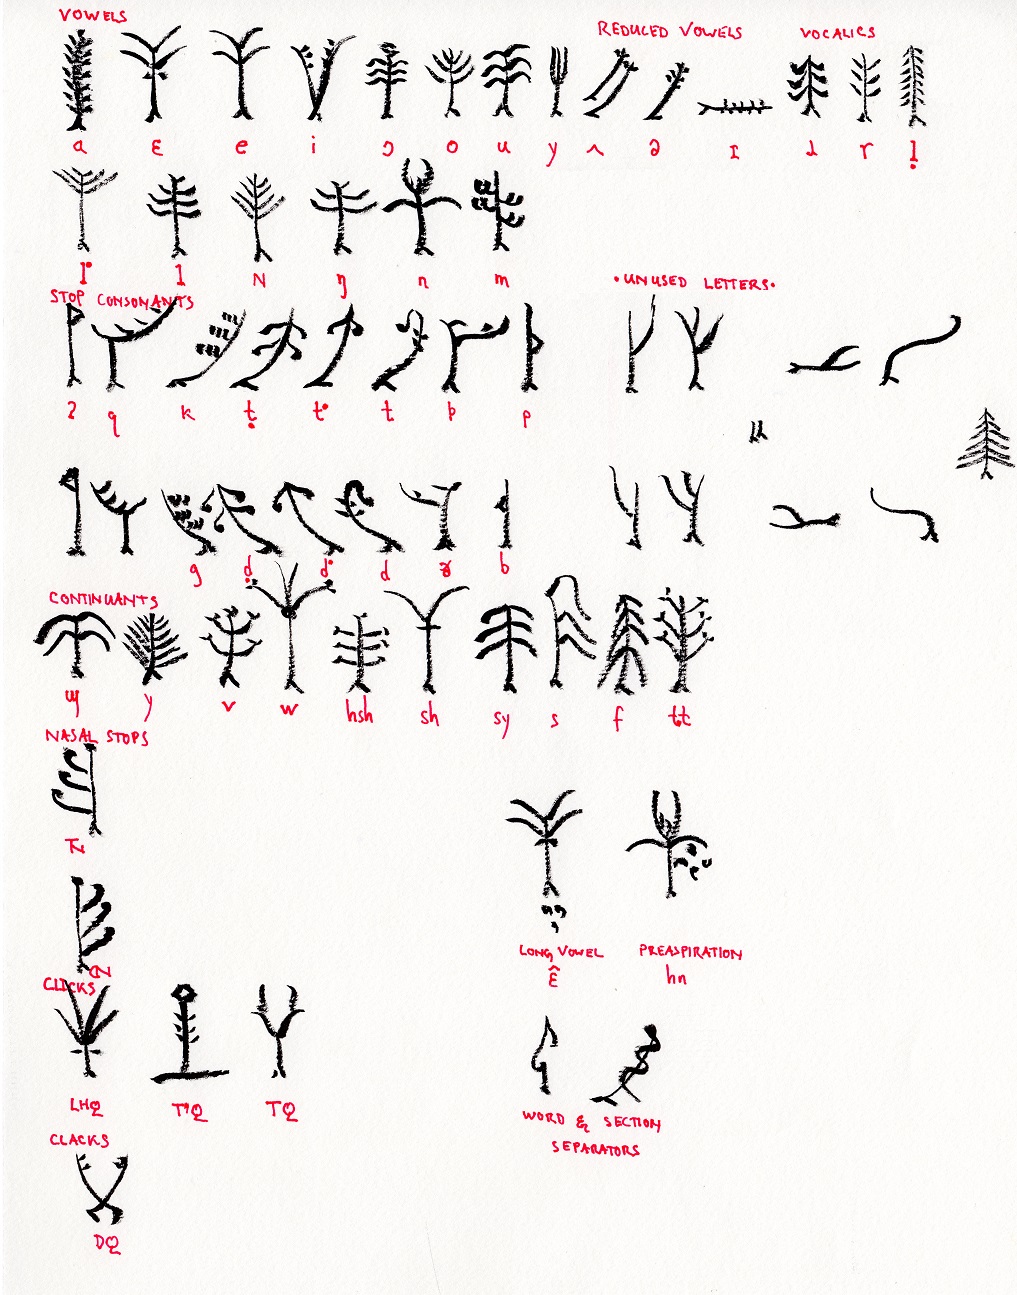 VOWELS
REDUCED VOWELS
VOCALICS
a ɛ e i ɔ o u y ʌ ə ɪ ɹ r ḷ
l• l N ŋ n m
STOP CONSONANTS
•UNUSED LETTERS•
ʔ q k ṭ t• t þ p
g ḍ d• d b
CONTINUANTS
ɰ y v w hsh sh sy s f tt
NASAL STOPS
LONG VOWEL
PREASPIRATION
ɛ̂ hn
CLICKS
LHQ TQ
WORD & SECTION
SEPARATORS
CLACKS
DQ